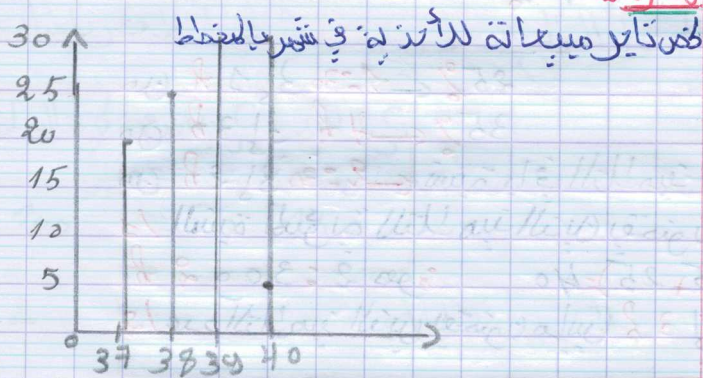 لخص تاجر مبيعاته للأحذية في شهر بالمخطط
30
25
20
15
10
5
0
37 38 39 40